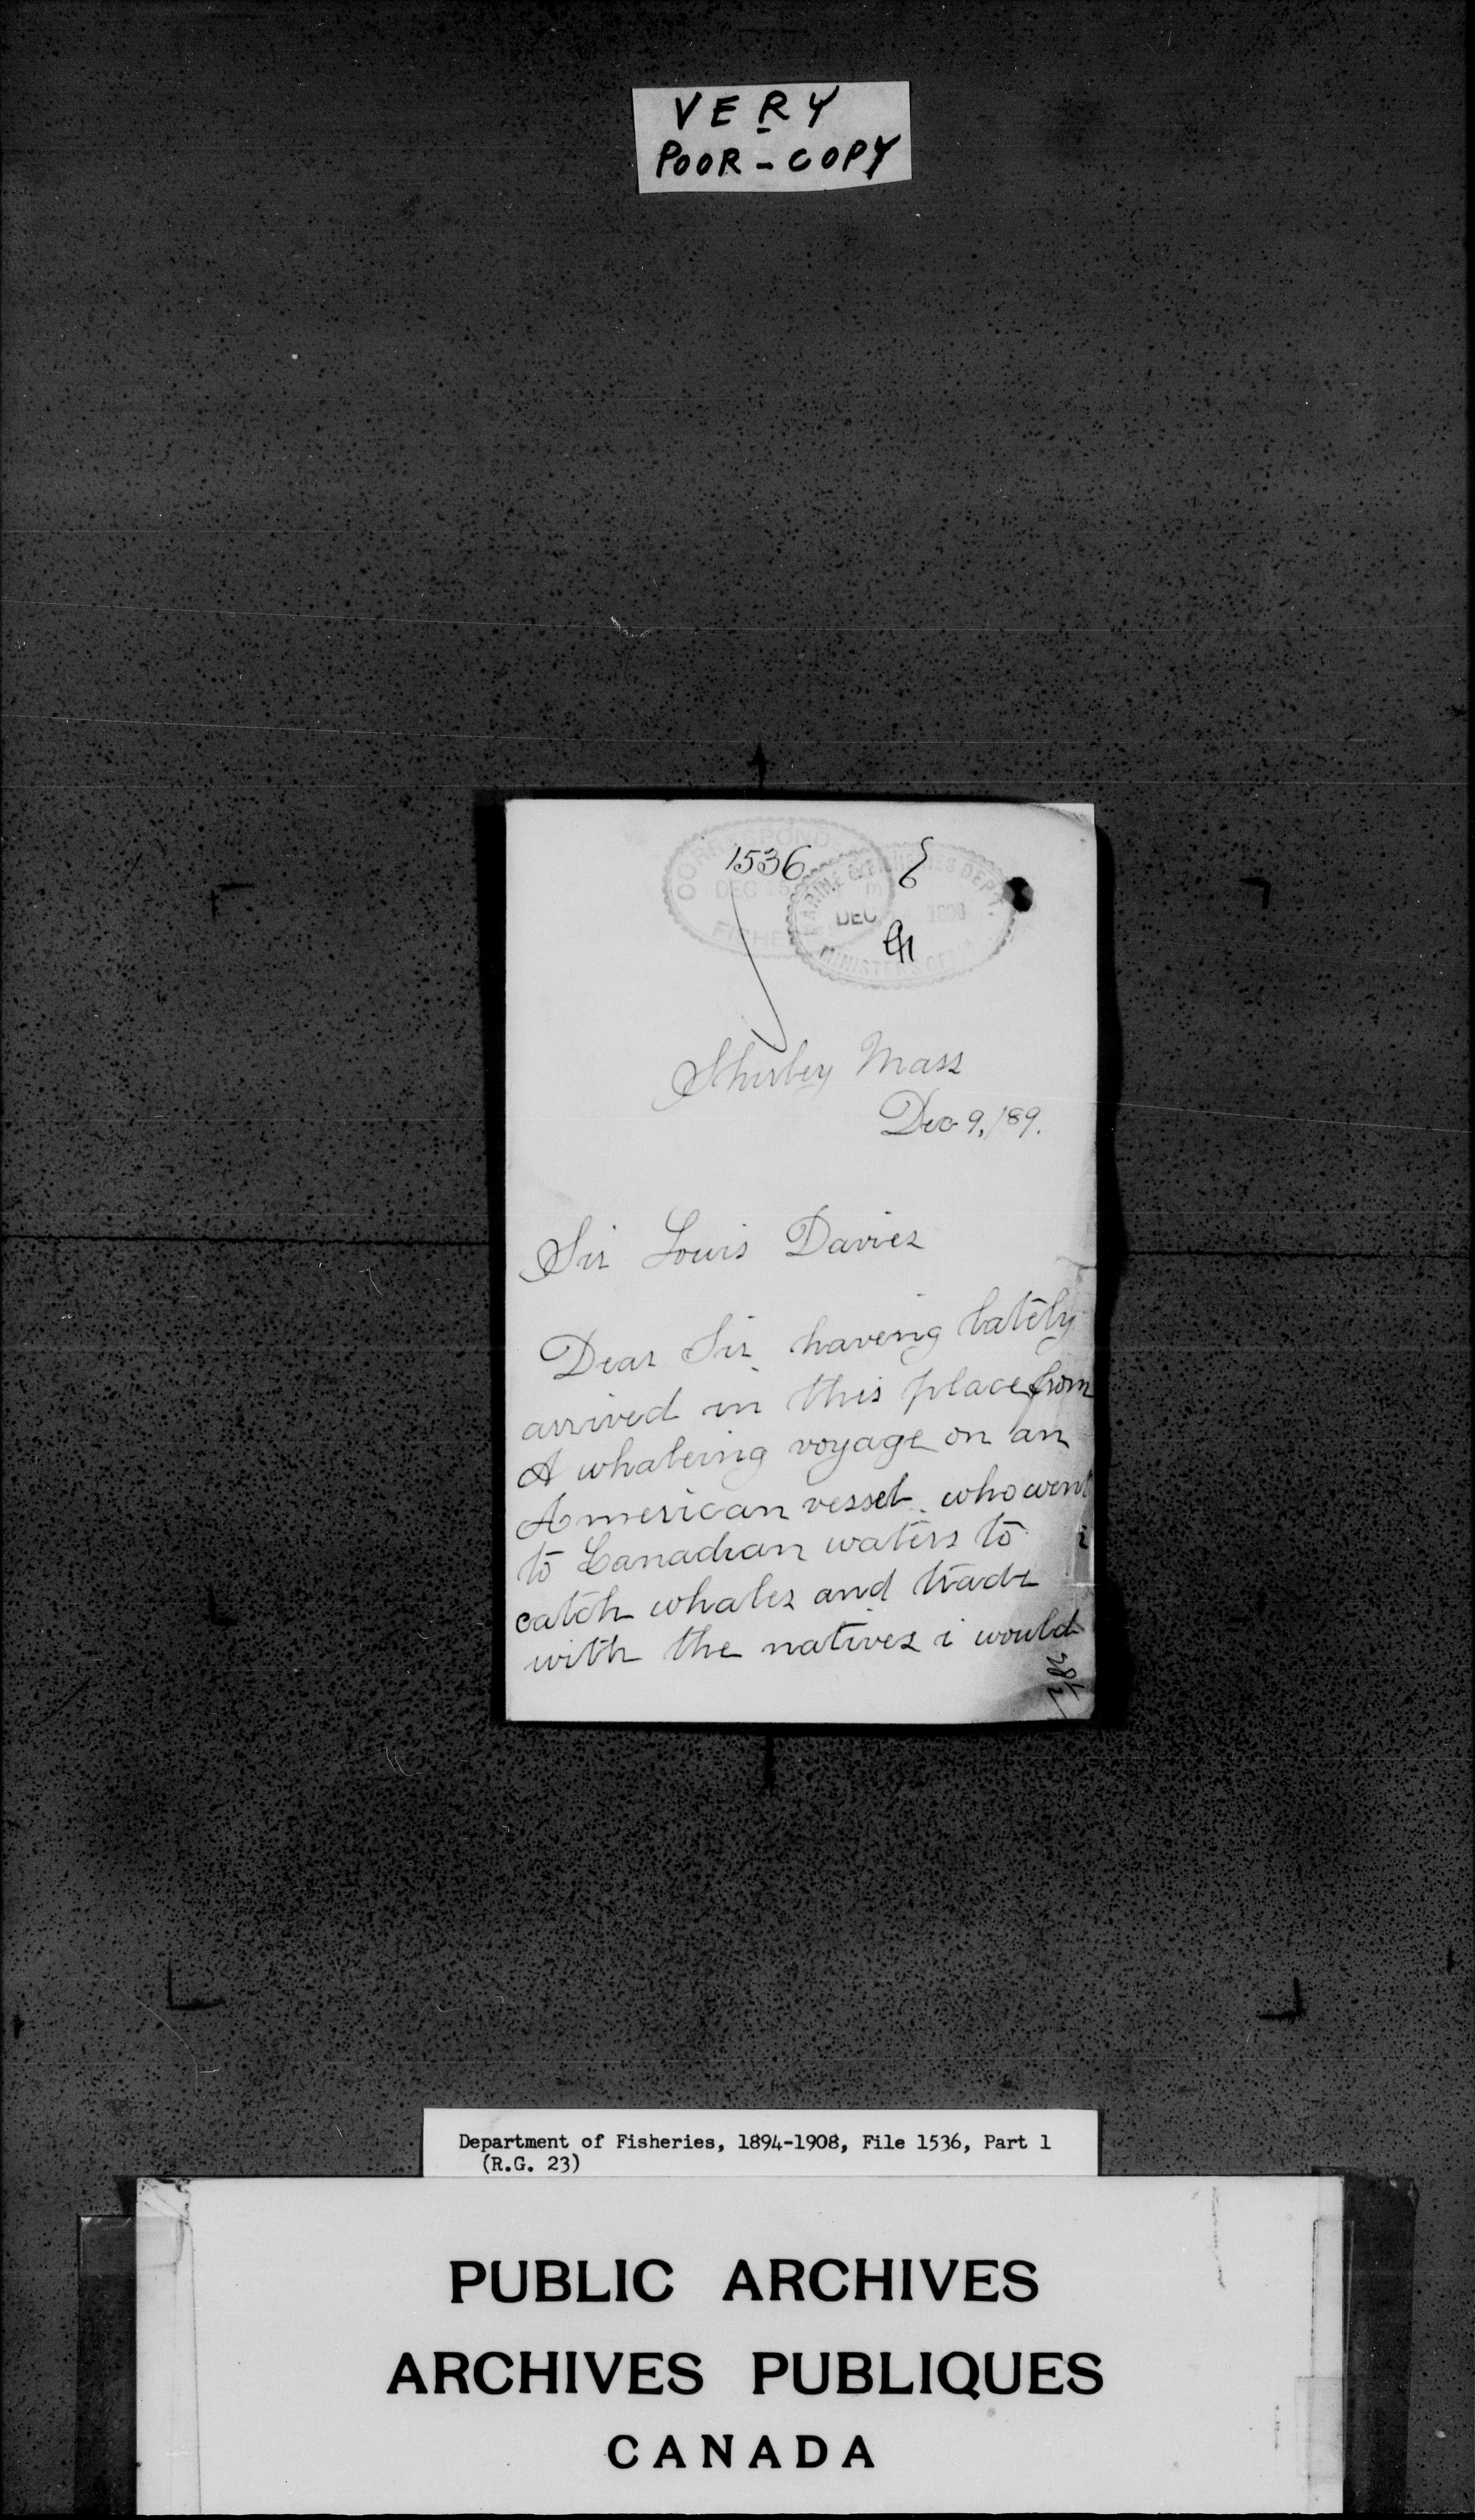 VERY
POOR - COPY
CORRESPOND
1536
DEC 15
FISHE
MARINE & FISHERIES DEPT.
DEC 1898
MINISTER'S OFFICE
Shirley Mass
Dec 9, 189.
Sir Louis Davies
Dear Sir having lately
arrived in this place from
A whaleing voyage on an
American vessel who went
to Canadian waters to
catch whales and trade
with the natives i would
Department of Fisheries, 1894-1908, File 1536, Part 1
(R.G. 23)
PUBLIC ARCHIVES
ARCHIVES PUBLIQUES
CANADA